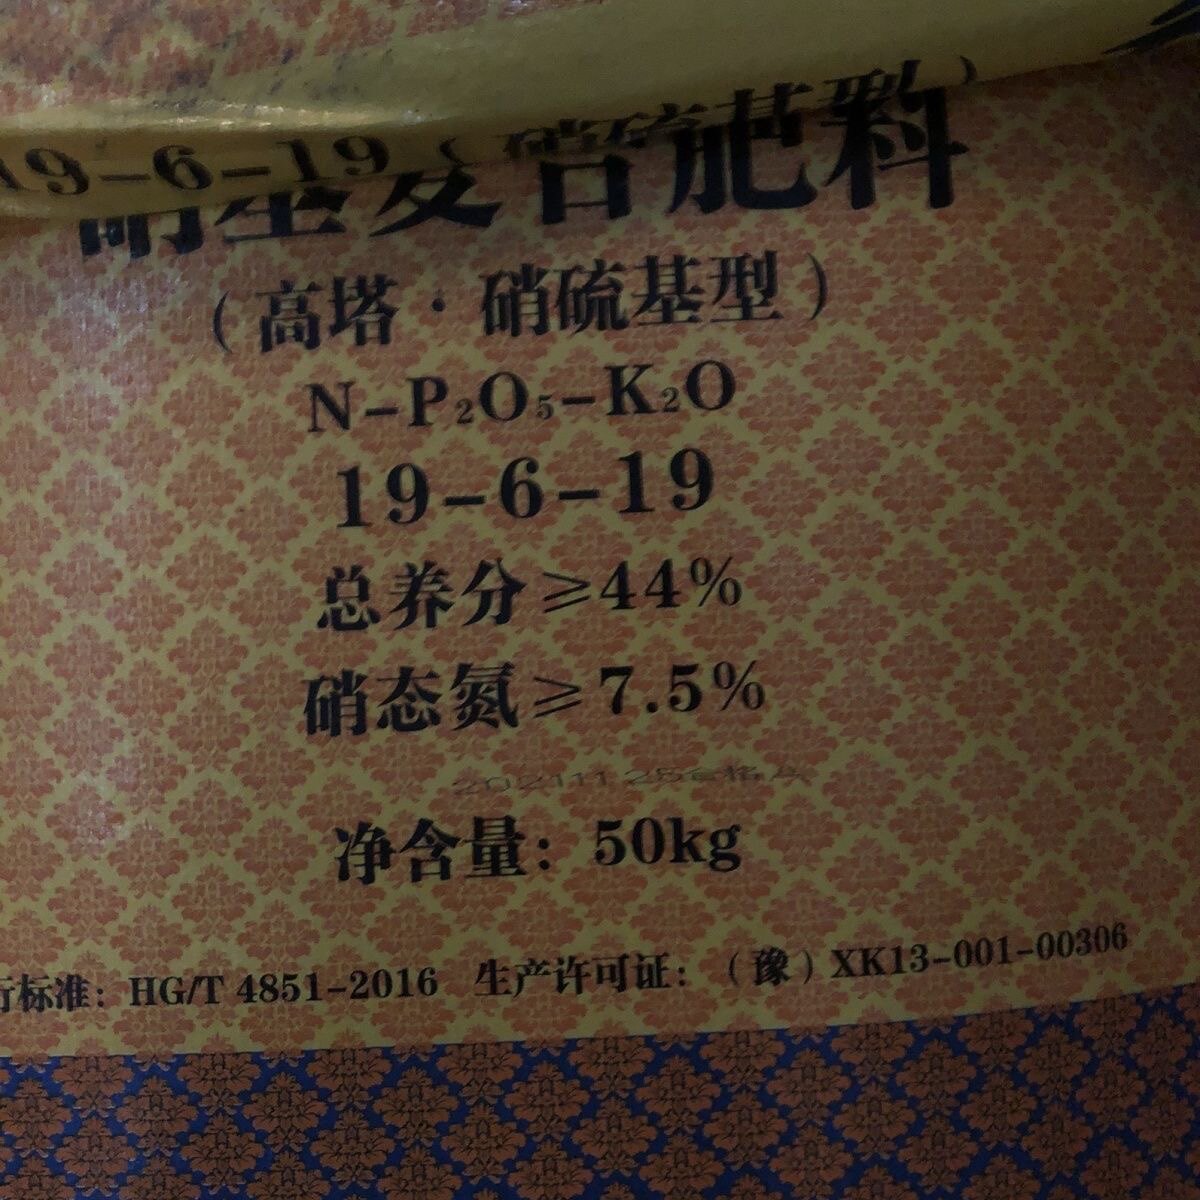 19-6-19（硝硫基型）
硝基复合肥料
（高塔·硝硫基型）
N-P₂O₅-K₂O
19-6-19
总养分≥44%
硝态氮≥7.5%
20211128合格
净含量：50kg
行标准：HG/T 4851-2016 生产许可证：（豫）XK13-001-00306